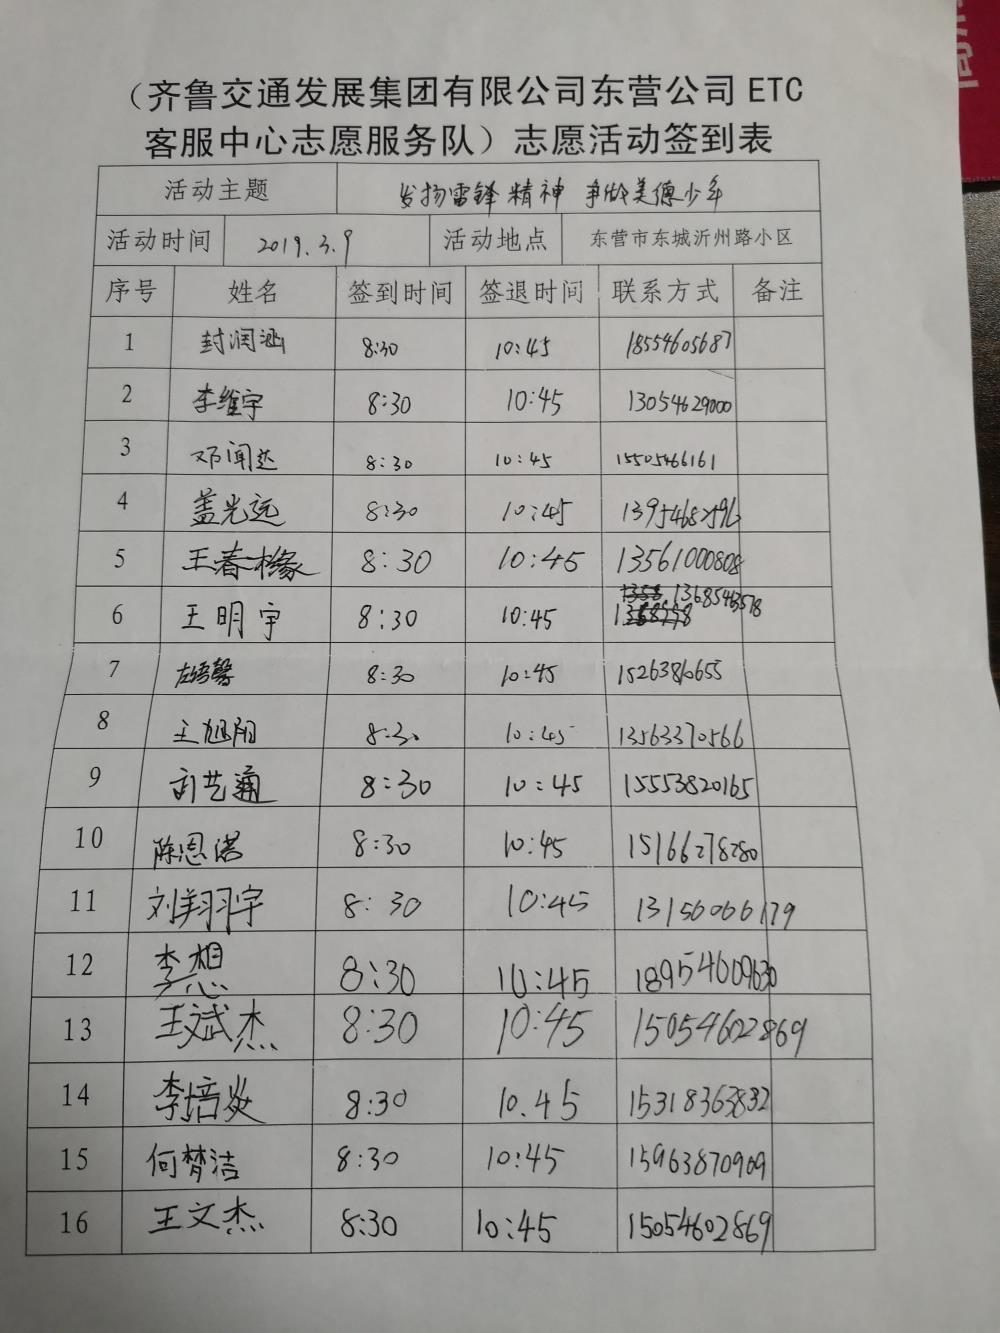 （齐鲁交通发展集团有限公司东营公司 ETC
客服中心志愿服务队）志愿活动签到表
活动主题 发扬雷锋精神 争做美德少年
活动时间 2019.3.9 活动地点 东营市东城沂州路小区
序号 姓名 签到时间 签退时间 联系方式 备注
1 封润涵 8:30 10:45 18554605687
2 李维宇 8:30 10:45 13054629000
3 邓闻达 8:30 10:45 15505466161
4 盖光远 8:30 10:45 13954682596
5 王春橼 8:30 10:45 13561000808
6 王明宇 8:30 10:45
7 8:30 10:45 15263810655
8 王旭阳 8:30 10:45 13563370566
9 刘艺涵 8:30 10:45 15553820165
10 陈恩诺 8:30 10:45 15166278280
11 刘翔宇 8:30 10:45 13156066179
12 李想 8:30 10:45 18954609630
13 王斌杰 8:30 10:45 15054602869
14 李培炎 8:30 10.45 15318363832
15 何梦洁 8:30 10:45 15963870909
16 王文杰 8:30 10:45 15054602869